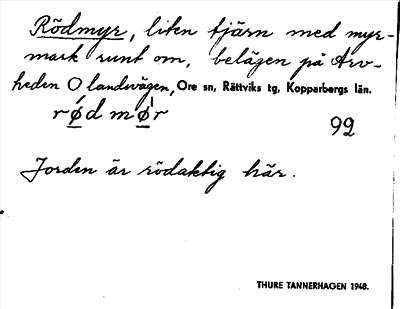 Rödmyr, liten tjärn med myr-
mark runt om, belägen på Arv-
heden O landsvägen, Ore sn, Rättviks tg, Kopparbergs län.
rǿd mǿr
92
Jorden är rödaktig här.
THURE TANNERHAGEN 1948.